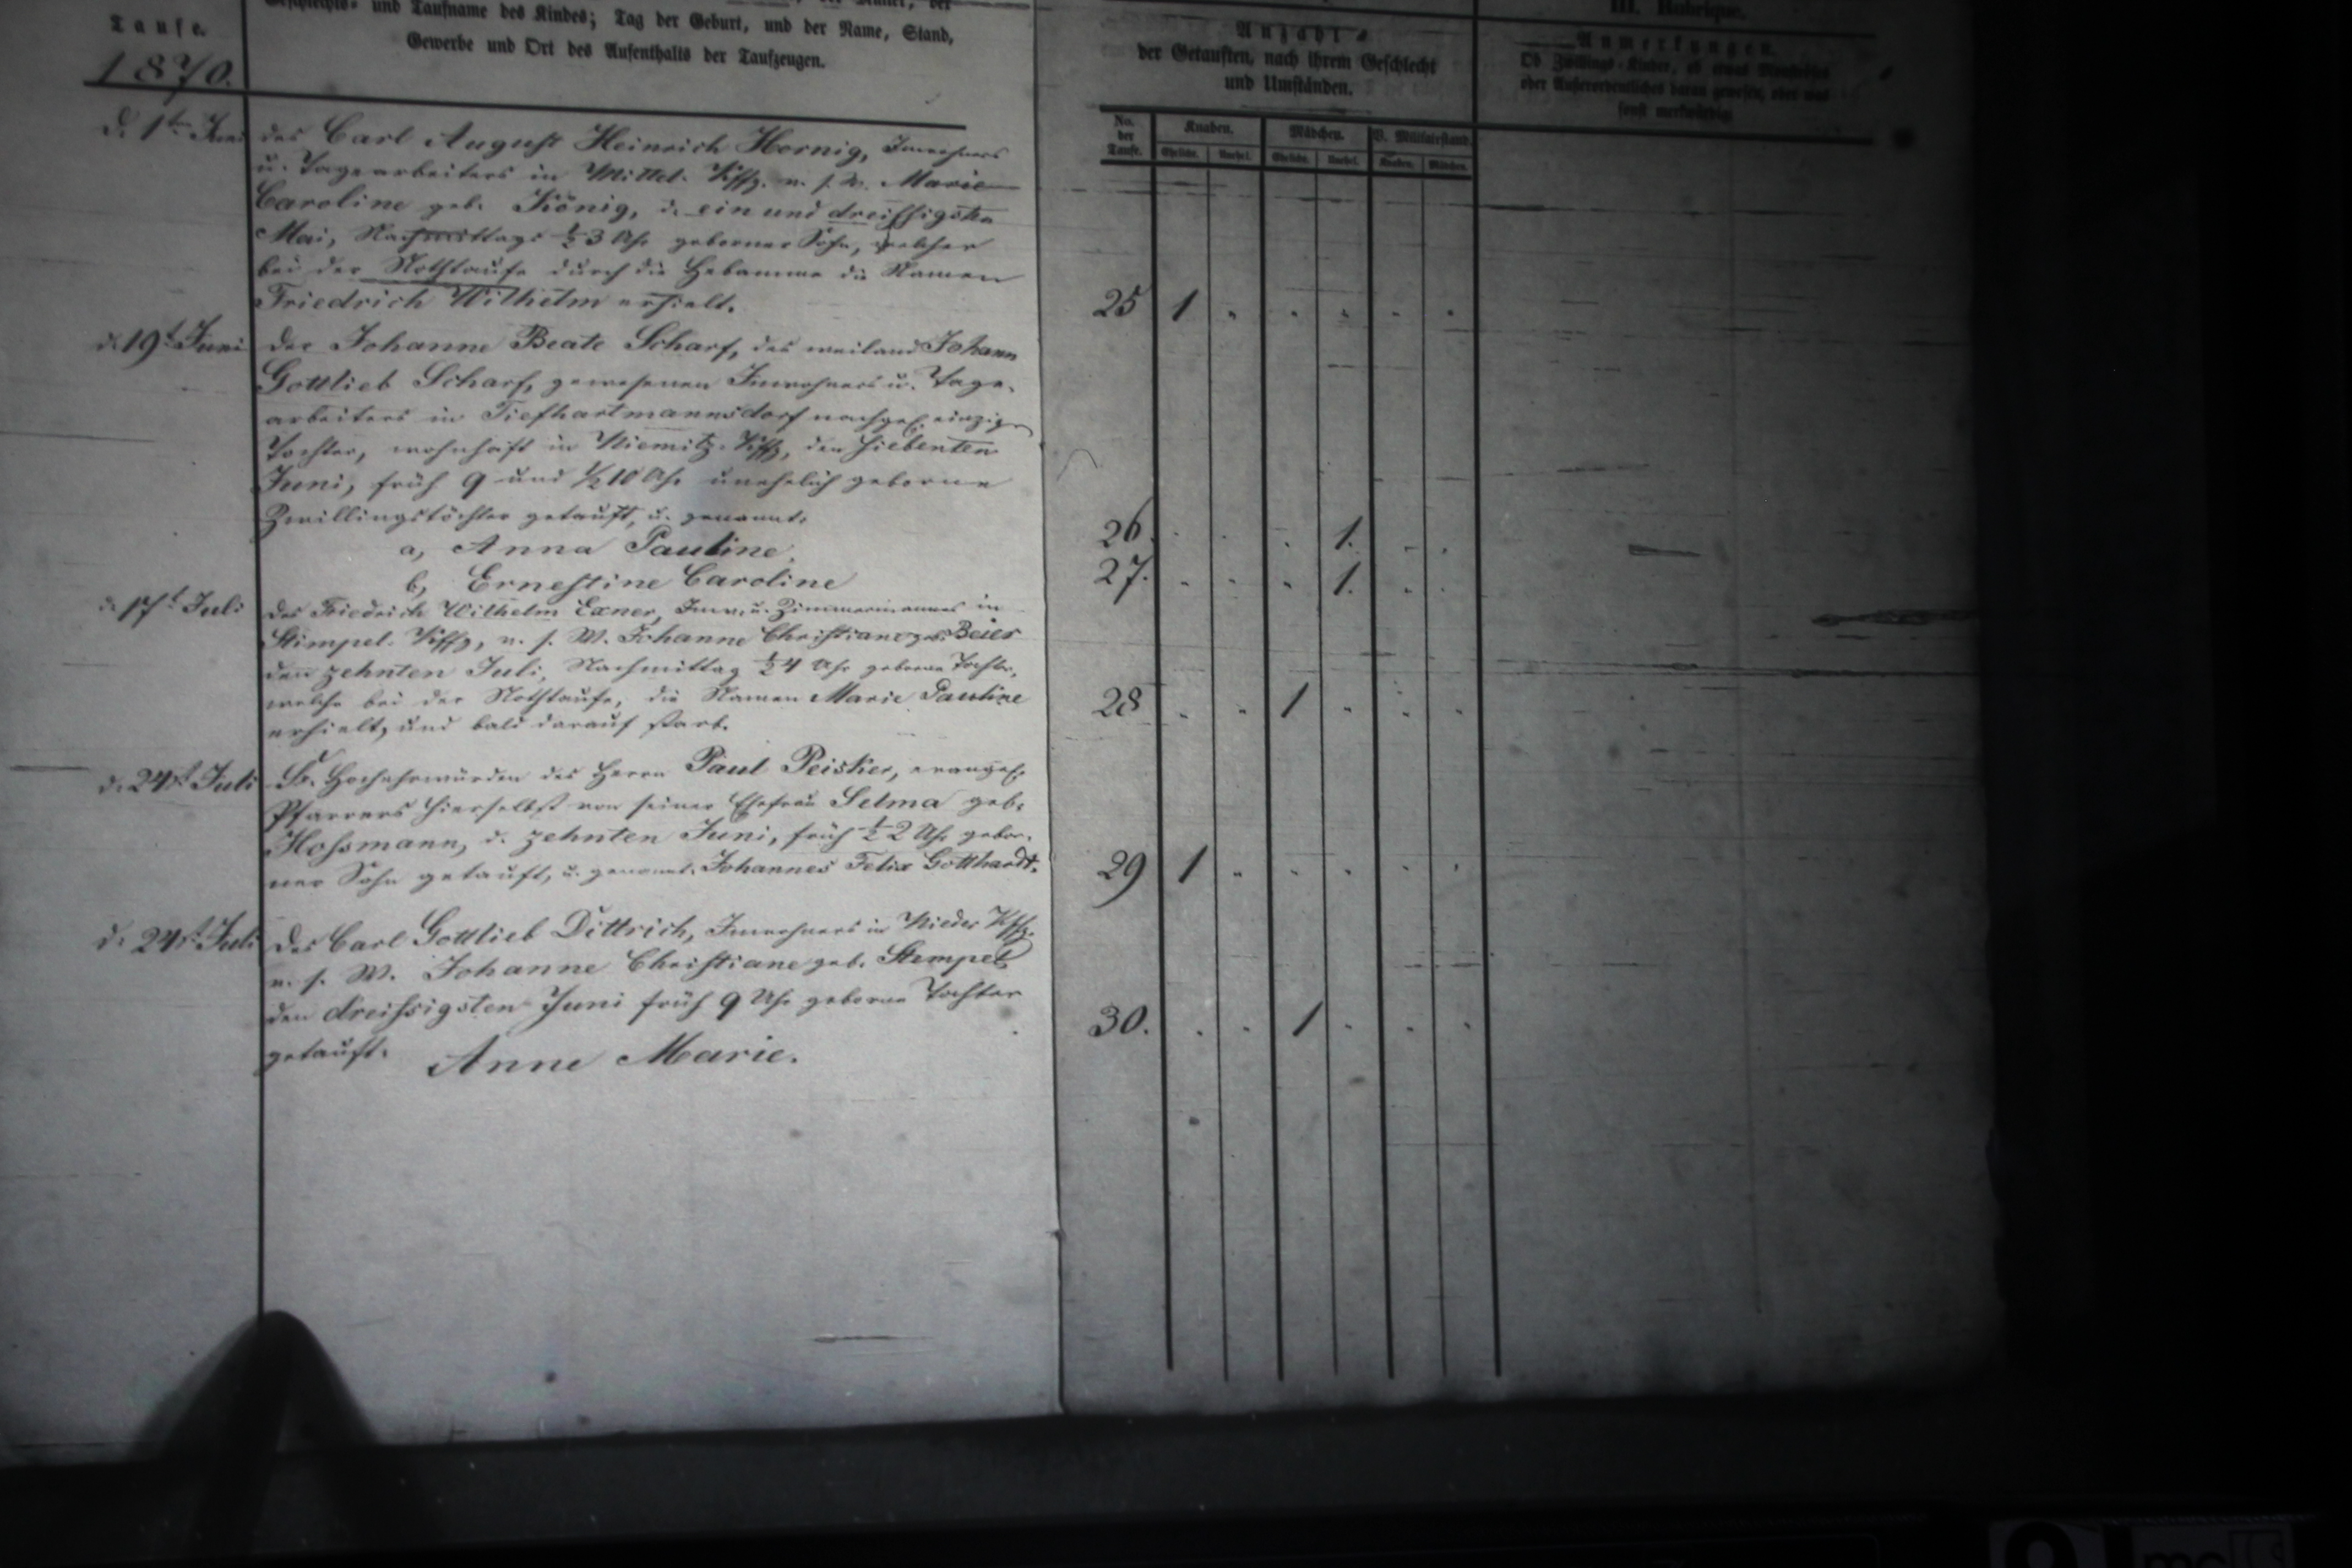 Taufe.
1870.
Geschlechts- und Taufname des Kindes; Tag der Geburt, und der Name, Stand,
Gewerbe und Ort des Aufenthalts der Taufzeugen.
Anzahl
der Getauften, nach ihrem Geschlecht
und Umständen.
III. Rubrique.
Anmerkungen.
Ob Zwillings-Kinder, ob etwas
oder Außerordentliches daran gewesen, oder was
sonst merkwürdig
No.
der
Taufe.
Knaben.
Mädchen.
V. Militairstand.
Ehelich. Unehel. Ehelich. Unehel. Knaben. Mädchen.
d. 1ten Juni des Carl August Heinrich Hornig, Inwohners
u. Tagearbeiters in Mittel-Kffg. v. s. W. Marie
Caroline geb. König, d. ein und dreißigsten
Mai, Nachmittags ½3 Uhr geborner Sohn, welcher
bei der Nothtaufe durch die Hebamme die Namen
Friedrich Wilhelm erhielt. 25 1 " " " " "
d. 19t Juni der Johanne Beate Scharf, des weiland Johann
Gottlieb Scharf, gewesenen Inwohners u. Tage-
arbeiters in Tiefhartmannsdorf nachgel. einzige
Tochter, wohnhaft in Niemitz-Kffg, den siebenten
Juni, früh 9 und ½10 Uhr unehelich geborne
Zwillingstöchter getauft, u. genannt.
a, Anna Pauline, 26. " " " 1. " "
b, Ernestine Caroline 27. " " " 1. " "
d. 17t Juli des Friedrich Wilhelm Exner, Inw. u. Zimmermannes in
Stimpel-Kffg, v. s. W. Johanne Christiane geb. Beier
den zehnten Juli, Nachmittag ½4 Uhr geborne Tochter,
welche bei der Nothtaufe, die Namen Marie Pauline 28 " " 1 " " "
erhielt, und bald darauf starb.
d. 24st Juli Sr. Hochehrwürden des Herrn Paul Peisker, evangel.
Pfarrers hierselbst von seiner Ehefrau Selma geb.
Hoßmann, d. zehnten Juni, früh ½2 Uhr gebor-
ner Sohn getauft, u. genannt. Johannes Felix Gotthardt. 29 1 " " " " "
d. 24st Juli Des Carl Gottlieb Dittrich, Inwohners in Nieder Kffg.
v. s. W. Johanne Christiane geb. Stempel,
den dreißigsten Juni früh 9 Uhr geborne Tochter 30. " " 1 " " "
getauft. Anne Marie.